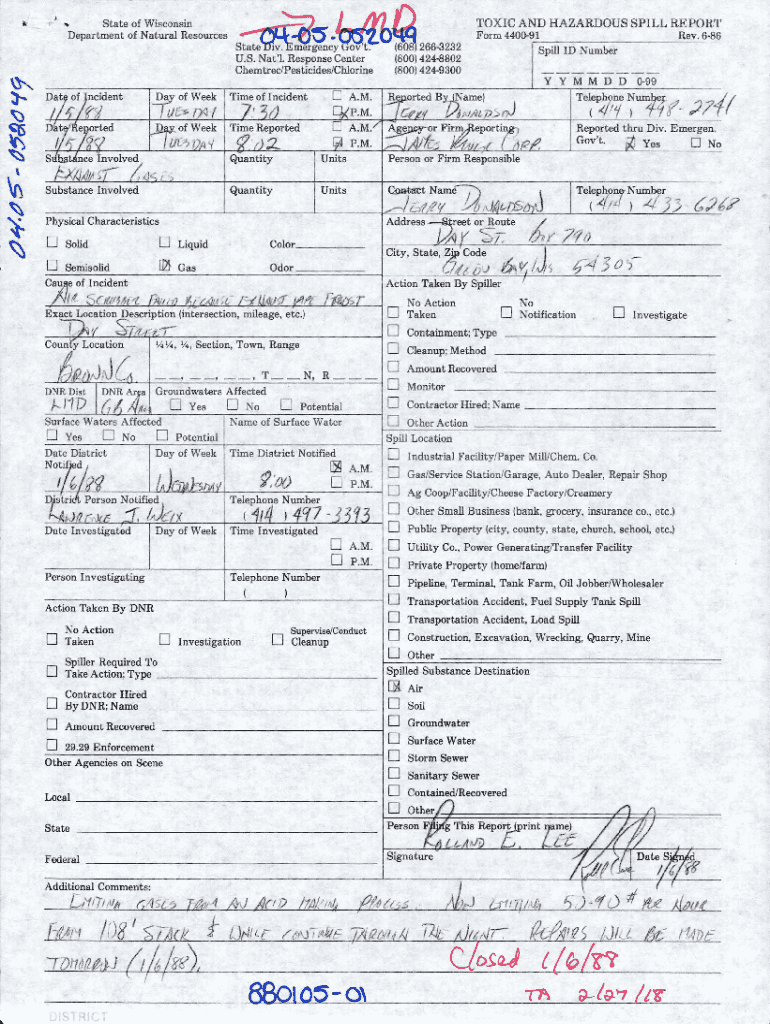 → LMD
State of Wisconsin
Department of Natural Resources
04-05-052049
State Div. Emergency Gov't. (608) 266-3232
U.S. Nat'l. Response Center (800) 424-8802
Chemtrec/Pesticides/Chlorine (800) 424-9300
TOXIC AND HAZARDOUS SPILL REPORT
Form 4400-91 Rev. 6-86
Spill ID Number
Y Y M M D D 0-99
04-05-052049
Date of Incident Day of Week Time of Incident A.M.
1/5/88 TUESDAY 7:30 X P.M.
Date Reported Day of Week Time Reported A.M.
1/5/88 TUESDAY 8:02 X P.M.
Substance Involved Quantity Units
EXHAUST GASES
Substance Involved Quantity Units
Physical Characteristics
Solid Liquid Color
Semisolid X Gas Odor
Cause of Incident
AIR SCRUBBER FAILED BECAUSE EXHAUST PIPE FROST
Exact Location Description (intersection, mileage, etc.)
DAY STREET
County Location ¼¼, ¼, Section, Town, Range
BROWN Co. , , , T N, R
DNR Dist DNR Area Groundwaters Affected
LMD GB Area Yes No Potential
Surface Waters Affected Name of Surface Water
Yes No Potential
Date District Notified Day of Week Time District Notified
1/6/88 WEDNESDAY 8:00 X A.M.
P.M.
District Person Notified Telephone Number
LAWRENCE J. WEIX (414) 497-3393
Date Investigated Day of Week Time Investigated
A.M.
P.M.
Person Investigating Telephone Number
( )
Action Taken By DNR
No Action Taken Investigation Supervise/Conduct Cleanup
Spiller Required To
Take Action; Type
Contractor Hired
By DNR; Name
Amount Recovered
29.29 Enforcement
Other Agencies on Scene
Local
State
Federal
Reported By (Name) Telephone Number
JERRY DONALDSON (414) 498-2741
Agency or Firm Reporting Reported thru Div. Emergen. Gov't.
CORP. Yes No
Person or Firm Responsible
Contact Name Telephone Number
JERRY DONALDSON (414) 433-6268
Address — Street or Route
DAY ST. Box 790
City, State, Zip Code
GREEN BAY, WIS 54305
Action Taken By Spiller
No Action Taken No Notification Investigate
Containment; Type
Cleanup; Method
Amount Recovered
Monitor
Contractor Hired; Name
Other Action
Spill Location
Industrial Facility/Paper Mill/Chem. Co.
Gas/Service Station/Garage, Auto Dealer, Repair Shop
Ag Coop/Facility/Cheese Factory/Creamery
Other Small Business (bank, grocery, insurance co., etc.)
Public Property (city, county, state, church, school, etc.)
Utility Co., Power Generating/Transfer Facility
Private Property (home/farm)
Pipeline, Terminal, Tank Farm, Oil Jobber/Wholesaler
Transportation Accident, Fuel Supply Tank Spill
Transportation Accident, Load Spill
Construction, Excavation, Wrecking, Quarry, Mine
Other
Spilled Substance Destination
X Air
Soil
Groundwater
Surface Water
Storm Sewer
Sanitary Sewer
Contained/Recovered
Other
Person Filing This Report (print name)
ROLLAND E. LEE
Signature Date Signed
1/6/88
Additional Comments:
EMITING GASES FROM AN ACID MAKING PROCESS. NOW EMITTING 50-90 # PER HOUR
FROM 108' STACK & WILL CONTINUE THROUGH THE NIGHT REPAIRS WILL BE MADE
TOMORROW (1/6/88).
Closed 1/6/88
880105-01
TA 2/27/18
DISTRICT